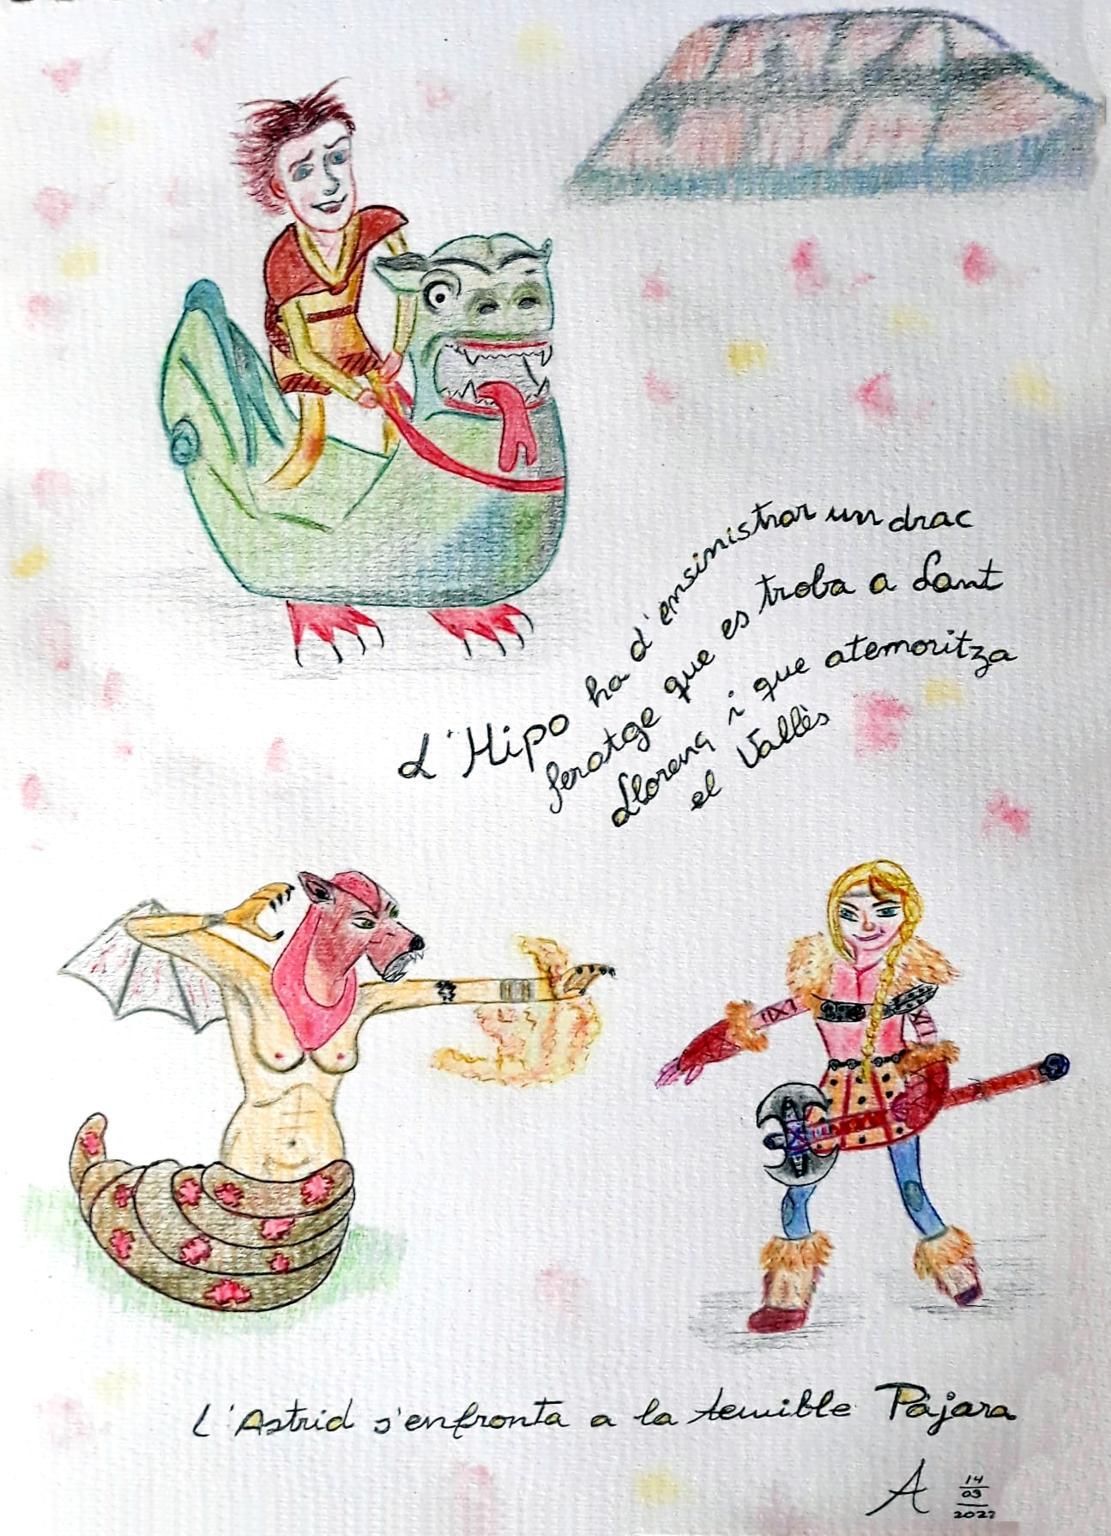 L'Hipo ha d'ensinistrar un drac
feratge que es troba a Sant
Llorenç i que atemoritza
el Vallès
L'Astrid s'enfronta a la temible Pájara
A 14
03
2022